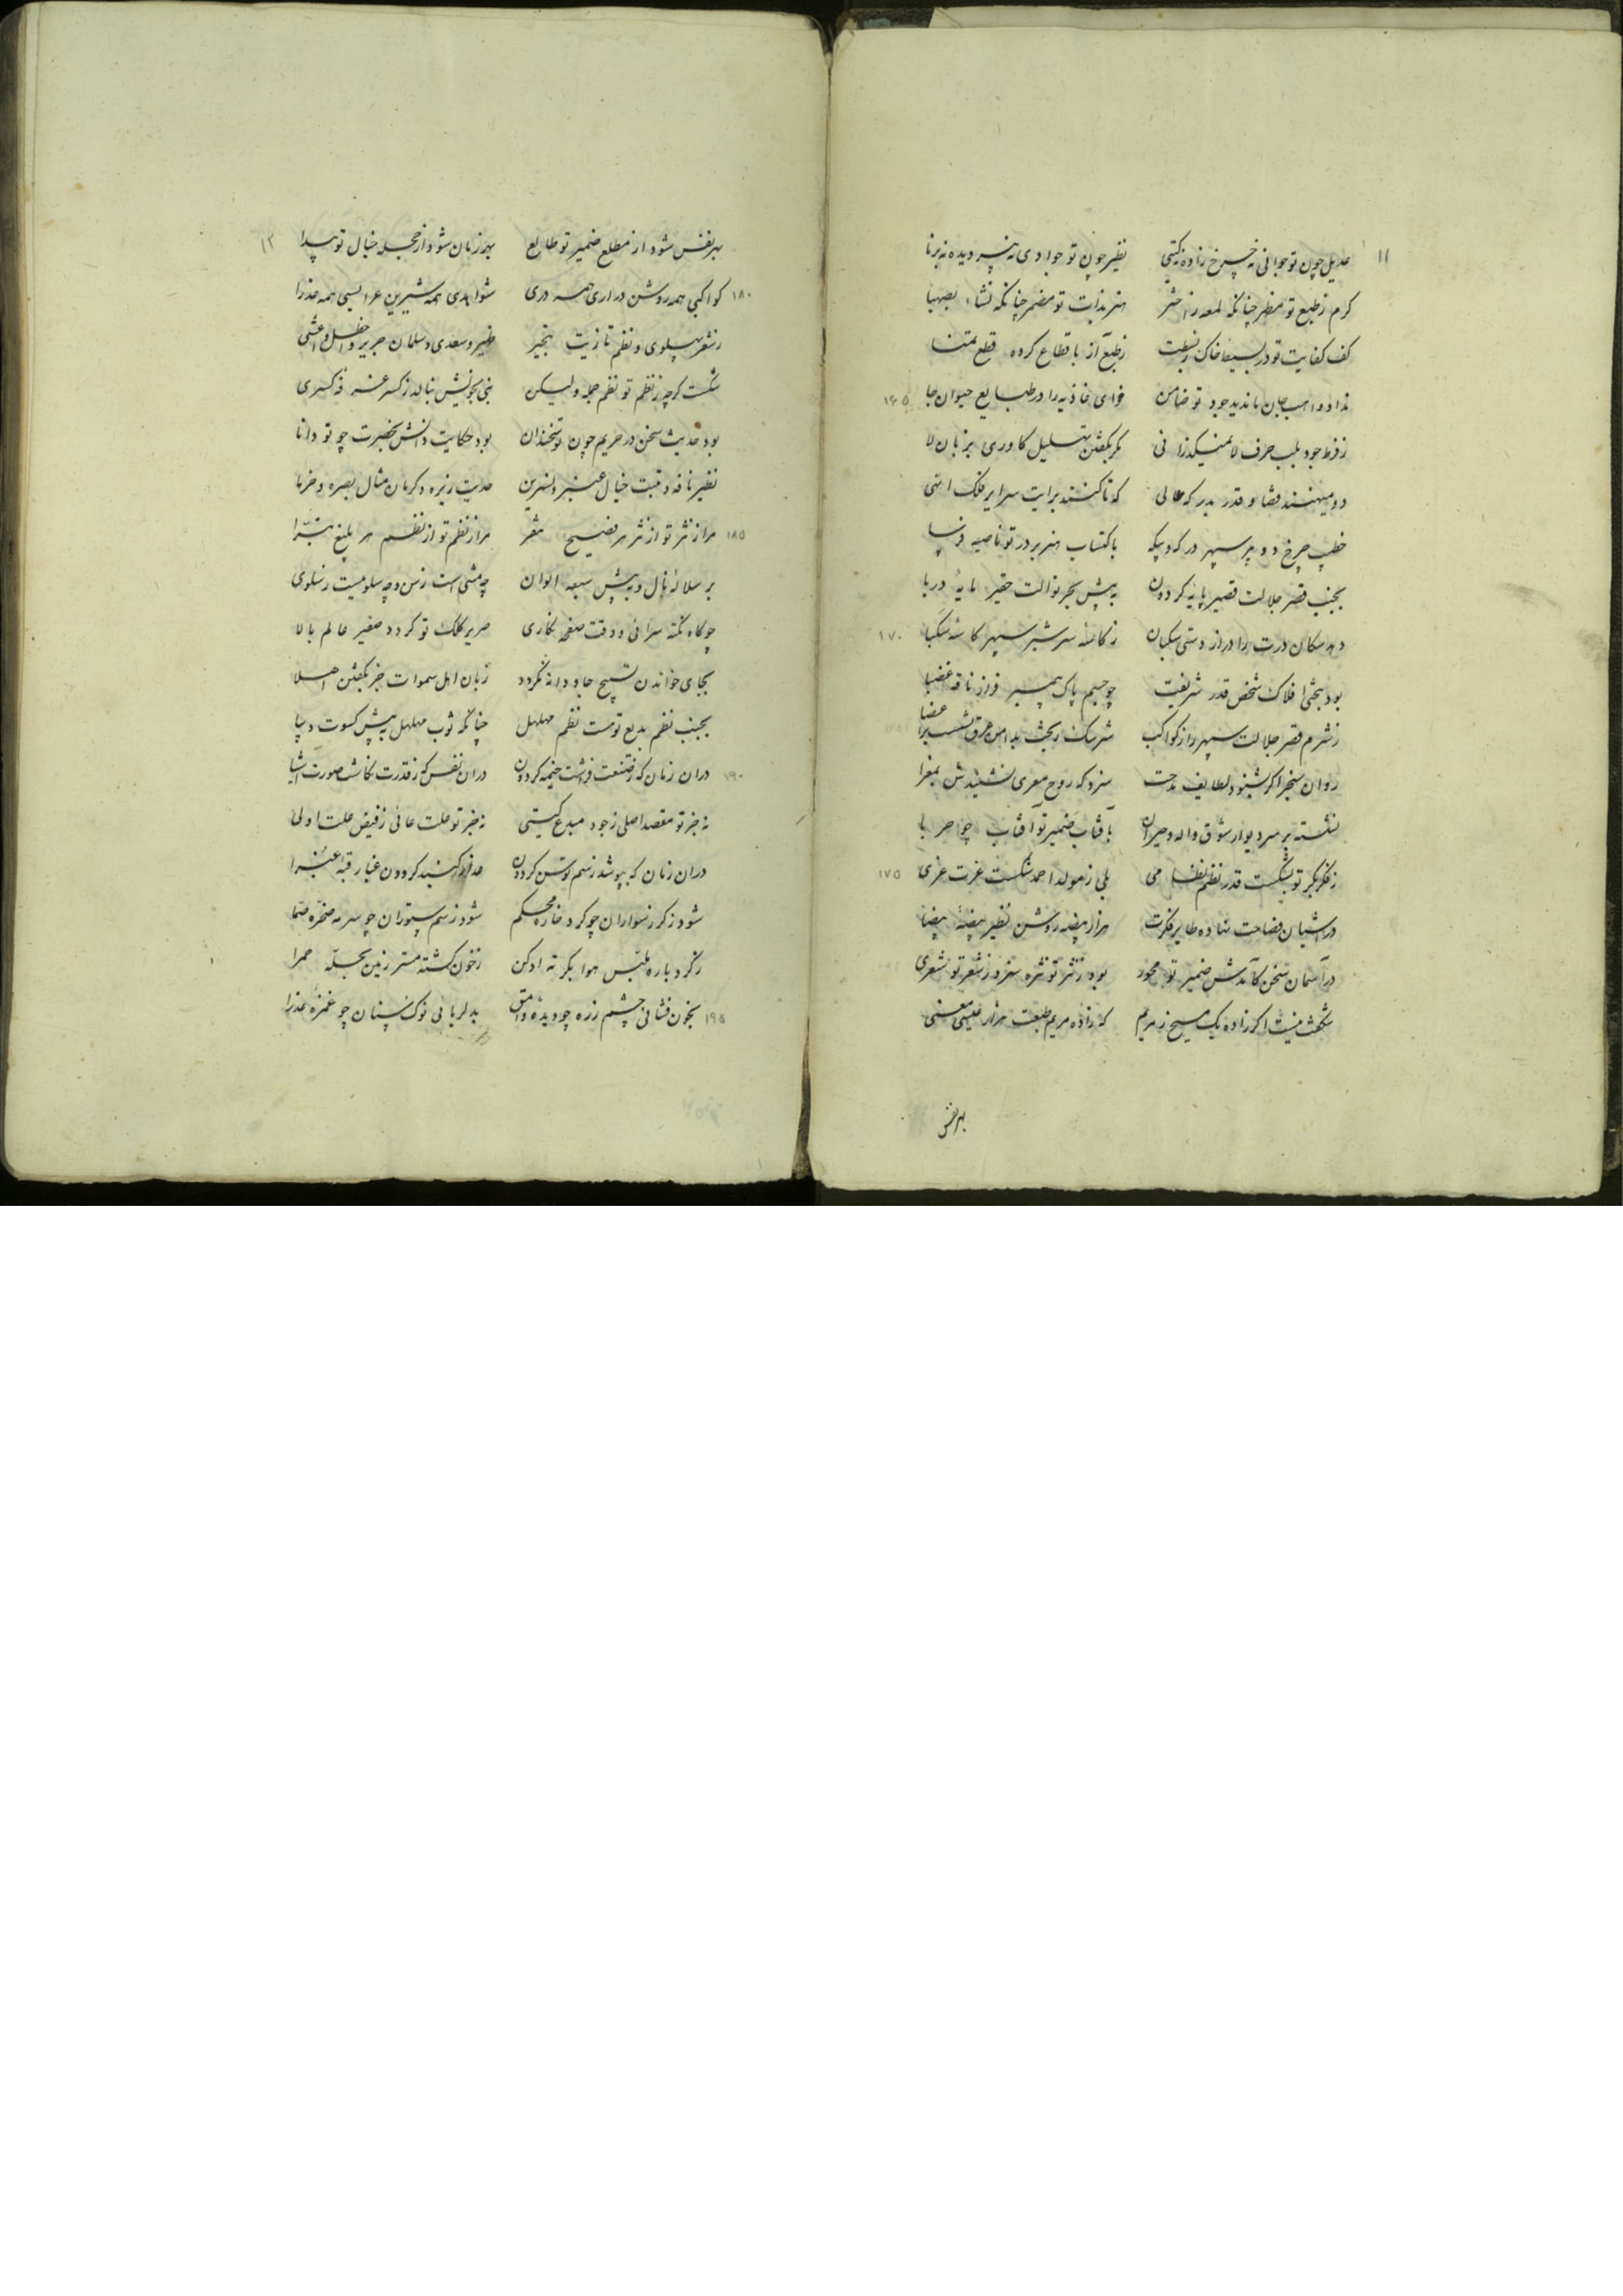 ۱۱
عدیل چون تو جوانی نه چرخ زاده نه گیتی نظیر چون تو جوادی نه پیر دیده نه برنا
کرم ز طبع تو مظهر چنانکه لمعه ز اختر هنر بذات تو مضمر چنانکه نشاء بصهبا
کف کفایت تو در بسیط خاک ز بسطت ز طبع آز باقطاع کرده قطع تمنا
نداد واهب جان تا ندید جود تو ضامن قوای غاذیه را در طبایع حیوان جا ۱۶۵
ز فرط جود بلب حرف لا نمیگذرانی مگر بگفتن تهلیل کاوری بزبان لا
دو میهنند قضا و قدر بدرکه عالی که تا کنند برایت سرایر فلک انهی
خطیب چرخ دوپیر سپهر در که و بیکه باکتساب هنر بر در تو ناصیه فرسا
بجنب قصر جلالت قصیر پایه گردون به پیش بحر نوالت حقیر مایهٔ دریا
دهد سگان درت را دراز دستی سگبان ز کاسه سر شیر سپهر کاسه سکبا ۱۷۰
بود بختی افلاک شخص قدر شریفت چو جسم پاک پیمبر فراز ناقه غضبا
عضبا
ز شرم قصر جلالت سپهر راز کواکب سرشک ریخت بدامن عرق نشست بسرا
روان سنجر اگر بشنود لطایف مدحت سزد که روح معزی نشیندش بمعزا
نشسته بر سر دیوار شوق واله و حیران بآفتاب ضمیر تو آفتاب چو حربا
ز فکر بکر تو بشکست قدر نظم نظامی بلی ز مولد احمد شکست عزت عزی ۱۷۵
در آشیان فصاحت نهاده طایر فکرت هزار بیضه روشن نظیر بیضهٔ بیضا
در آسمان سخن کآمدش ضمیر تو محور بود ز نثر تو نثره سزد ز شعر تو شعری
شگفت نیست اگر زاده یک مسیح ز مریم که زاده مریم طبعت هزار عیسی معنی
بهر نفس
۱۲
بهر نفس شود از مطلع ضمیر تو طالع بهر زمان شود از حجله خیال تو پیدا
۱۸۰ کواکبی همه روشن دراری همه دری شواهدی همه شیرین عرایسی همه عذرا
ز شعر پهلوی و نظم تازیت بتحیر ظهیر و سعدی و سلمان جریر و اخطل و اعشی
شکست گرچه ز نظم تو نظم جمله ولیکن نبی بخویش ببالد ز کسر غرفه کسری
بود حدیث سخن در حریم چون تو سخندان بود حکایت دانش بحضرت چو تو دانا
نظیر نافه و تبت خیال عنبر و نسرین حدیث زیره و کرمان مثال بصره و خرما
۱۸۵ مرا ز نثر تو از نثر هر فصیح تنفر مرا ز نظم تو از نظم هر بلیغ تبرا
بر سلاله نال و به پیش سبعه الوان چه منتی است ز من و چه سلوتیست ز سلوی
چو گاه نکته سرائی و وقت صفحه نگاری صریر کلک تو گردد صفیر عالم بالا
بجای خواندن تسبیح جاودانه نگردد زبان اهل سموات جز بگفتن احسنلا
بجنب نظم بدیع تو هست نظم مهلهل چنانکه ثوب مهلهل به پیش کسوت دیبا
۱۹۰ در آن زمان که ز صنعت فراشت خیمه گردون در آن نفس که ز قدرت نگاشت صورت اشیا
نه جز تو مقصد اصلی ز جود مبدع گیتی نه جز تو علت غائی ز فیض علت اولی
در آن زمان که بپوشد ز سم توسن گردون عذار گنبد گردون غبار قبهٔ غبرا
شود ز گرز سواران چو گرد خارهٔ محکم شود ز سم ستوران چو سرمه صخرهٔ صما
ز گرد باره ملبس هوا بکرته ادکن ز خون کشته مستر زمین بحلهٔ حمرا
۱۹۵ بخون فشانی چشم زره چو دیدهٔ وامق بدلربائی نوک سنان چو غمزهٔ عذرا